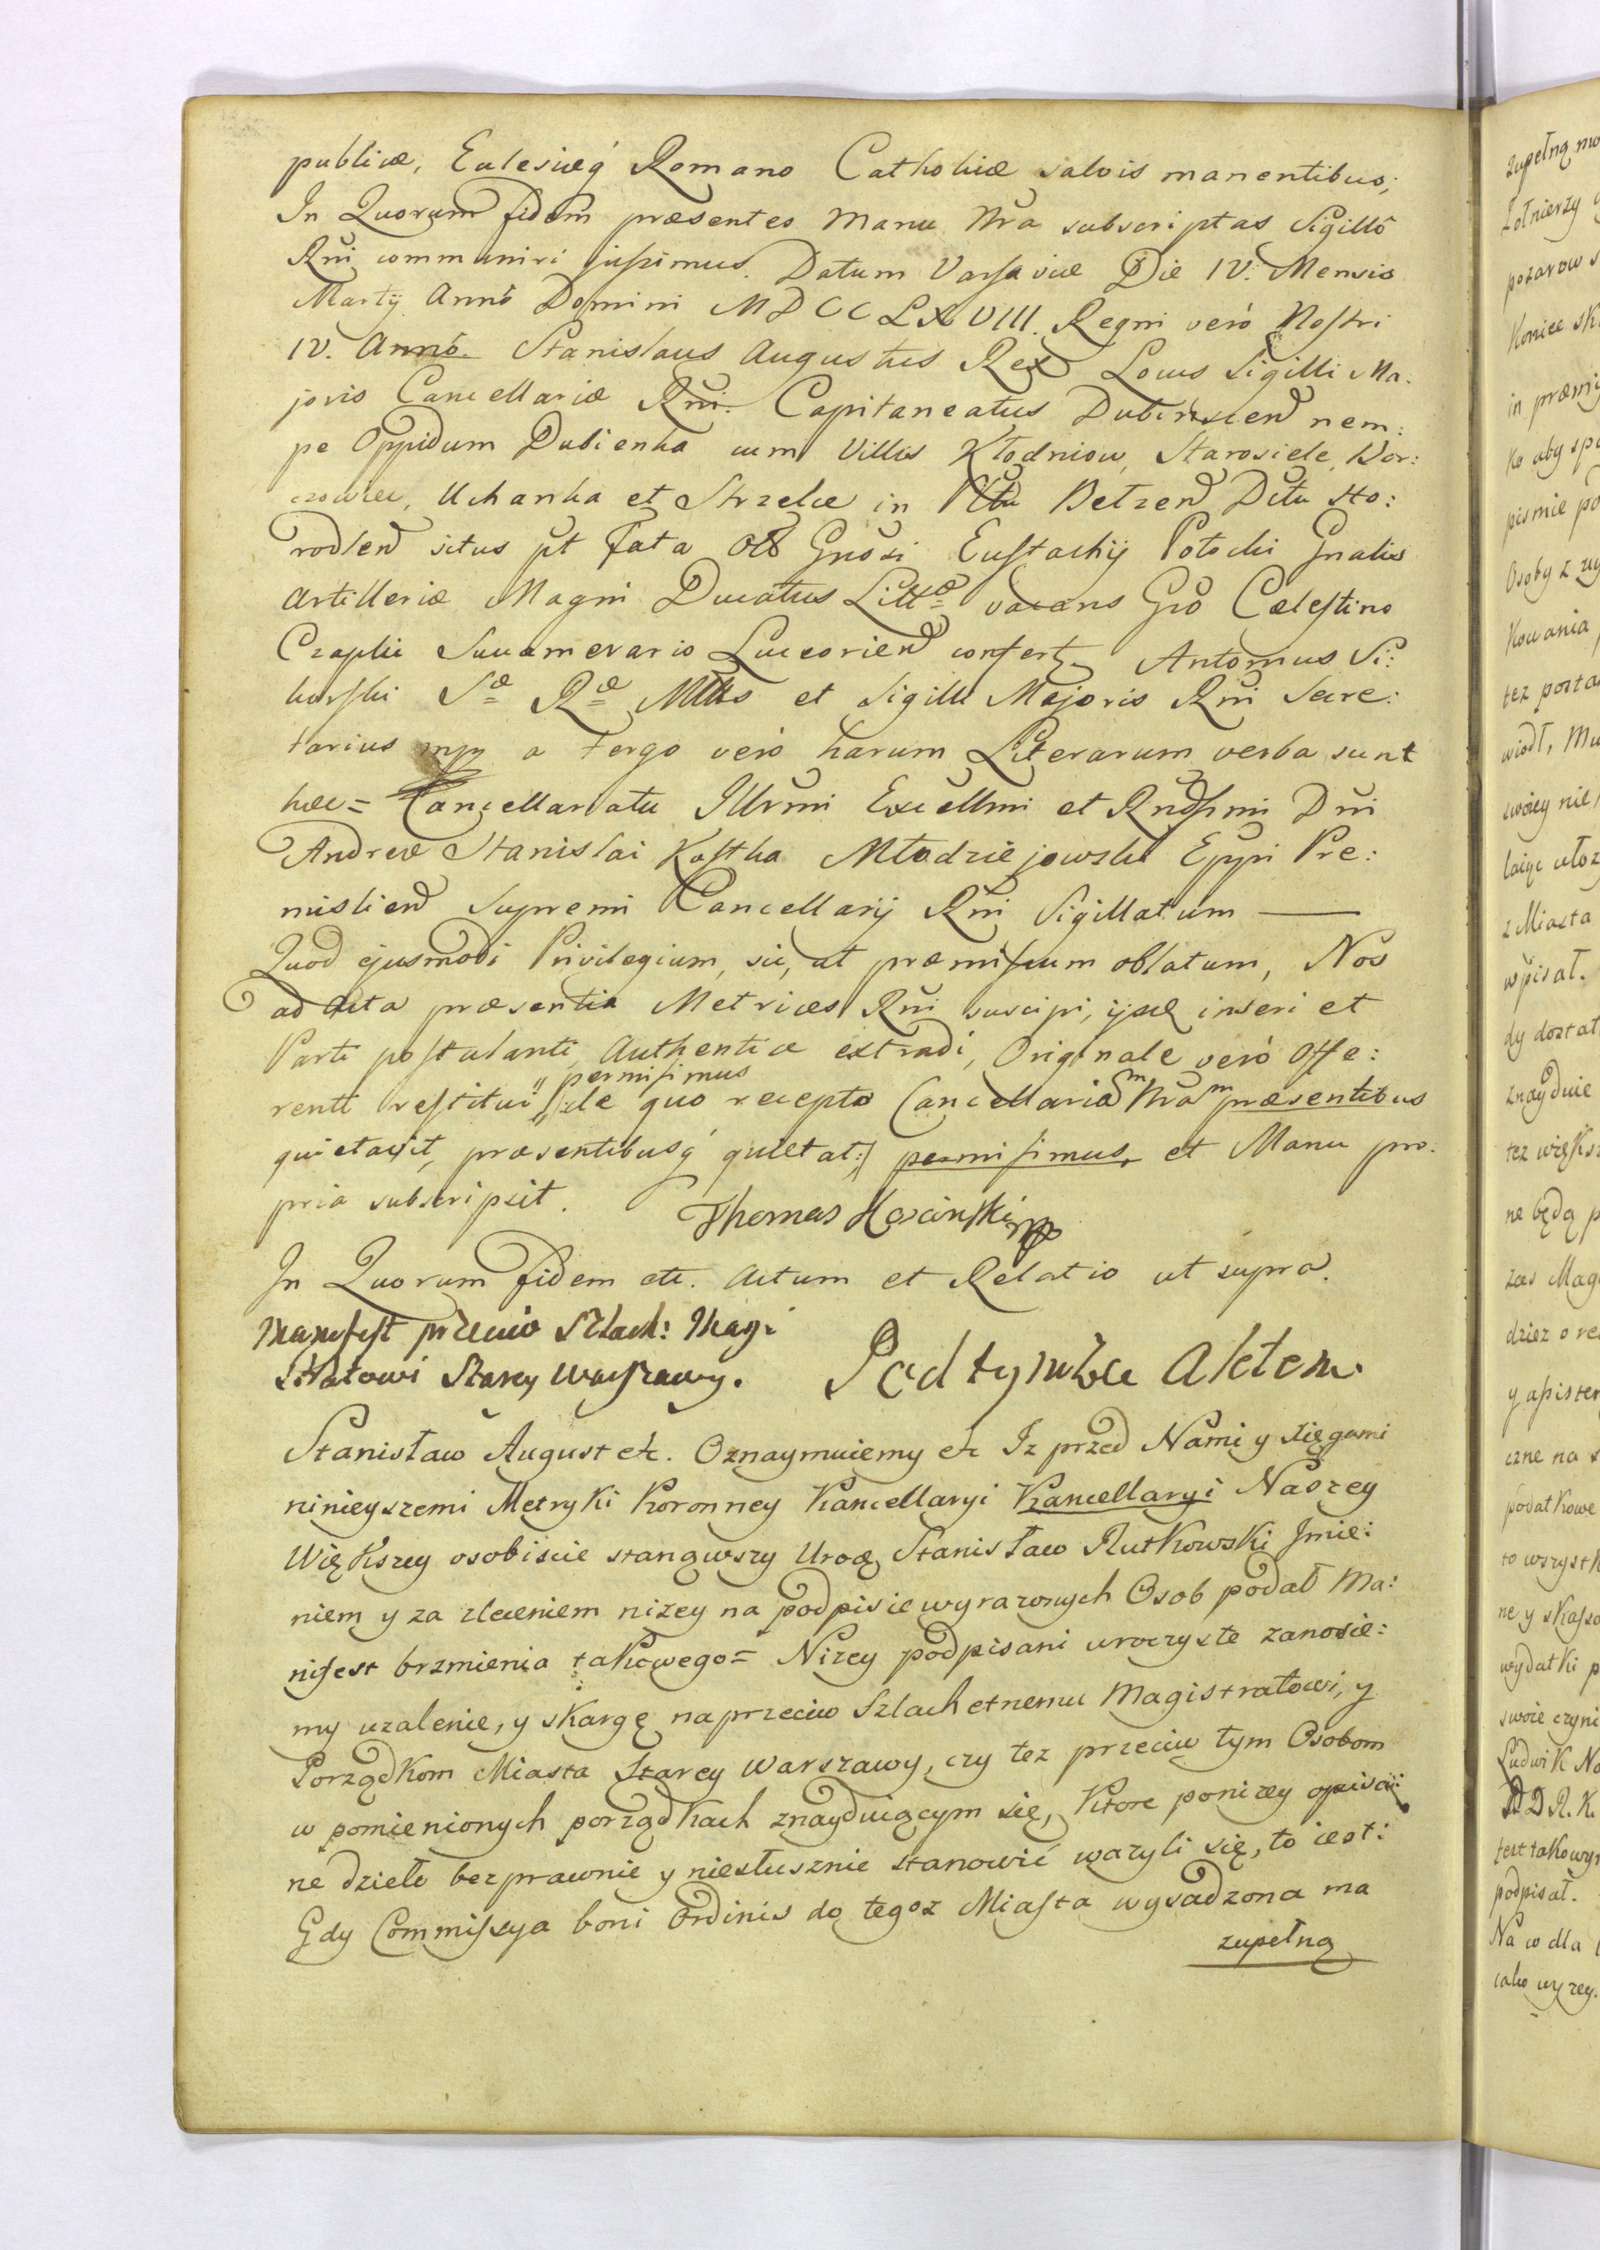 publicæ, Eclesiæq́ Romano Catholicæ salvis manentibus;
In Quorum fidem præsentes Manu Nrã subscriptas Sigillô
Rñi communiri jussimus. Datum Varsaviæ Die IV. Mensis
Martij Annô Domini MDCCLXVIII. Regni verò Nostri
IV. Annô. Stanislaus Augustus Rex Locus Sigilli Ma:
joris Cancellariæ Rñi. Capitaneatus Dubinscen nem:
pe Oppidum Dubienka cum Villis Kłodniow, Starosiele, Hor:
, Uchanka et Strzelce in Pttu Betzen Dttu Ho:
rodlen situs pt fata Olb Gnosi Eustachij Potocki Gnalis
Artilleriæ Magni Ducatus Littæ vacans Gño Cælestino
Czaplic Succamerario Luceorien confert. Antonius Si:
korski Sæ Ræ Mttis et Sigilli Majoris Rñi Secre:
tarius mpp a tergo verò harum Literarum verba sunt
hæc= Cancellariatu Illrmi Excellmi et Rñdssmi Dñi
Andreæ Stanislai Kostka Młodziejowski Eppi Pre:
mislien Supremi Cancellarij Rñi Sigillatum —
Quod ejusmodi Privilegium, sic, ut præmissum oblatum, Nos
ad Acta præsentia Metrices Rñi suscipi, ijsq inseri et
Parti postulanti Authentice extradi, Originale verò Offe:
permisimus
renti restitui /:de quo recepto Cancellariam Nram præsentibus
quietavit, præsentibusq́ quietat:/ permisimus, et Manu pro:
pria subscripsit. Thomas Kosinski mpp
In Quorum fidem etc. Actum et Relatio ut supra.
Manifest przeciw Szlach: Magi:
stratowi Starey Warszawy. Pod tymże Aktem
Stanisław August etc. Oznaymuiemy etc Iz przed Nami y xięgami
ninieyszemi Metryki Koronney Kancellaryi Kancellaryi Naszey
Większey osobiscie stanąwszy Urodz Stanisław Rutkowski Jmie:
niem y za zleceniem nizey na podpisie wyrazonych Osob podał Ma:
nifest brzmienia takowego= Nizey podpisani uroczyste zanosie:
my uzalenie, y skargę naprzeciw Szlachetnemu Magistratowi, y
Porządkom Miasta Starey Warszawy, czy tez przeciw tym Osobom
w pomienionych porządkach znayduiącym się, ktore ponizey opisa:
ne dzieło bezprawnie y niesłusznie stanowić wazyli się, to iest:
Gdy Commissya boni Ordinis do tegoz Miasta wysadzona ma
zupełną
zupełną
Zołnierzy
pozarow s
Koniec
in
Ko aby
pismie
Osoby z
Kowania
tez
wiodł,
swoiey nie
z Miasta
wpisał.
dy
znayduie
tez
ne będą p
zas Mag
dziez o
czne na s
podatkowe
to wszystk
ne y skasso
wydatki p
swoie czyni
Ludwik No
DDR.K.
podpisał.
Na w dla
iako wyzey.